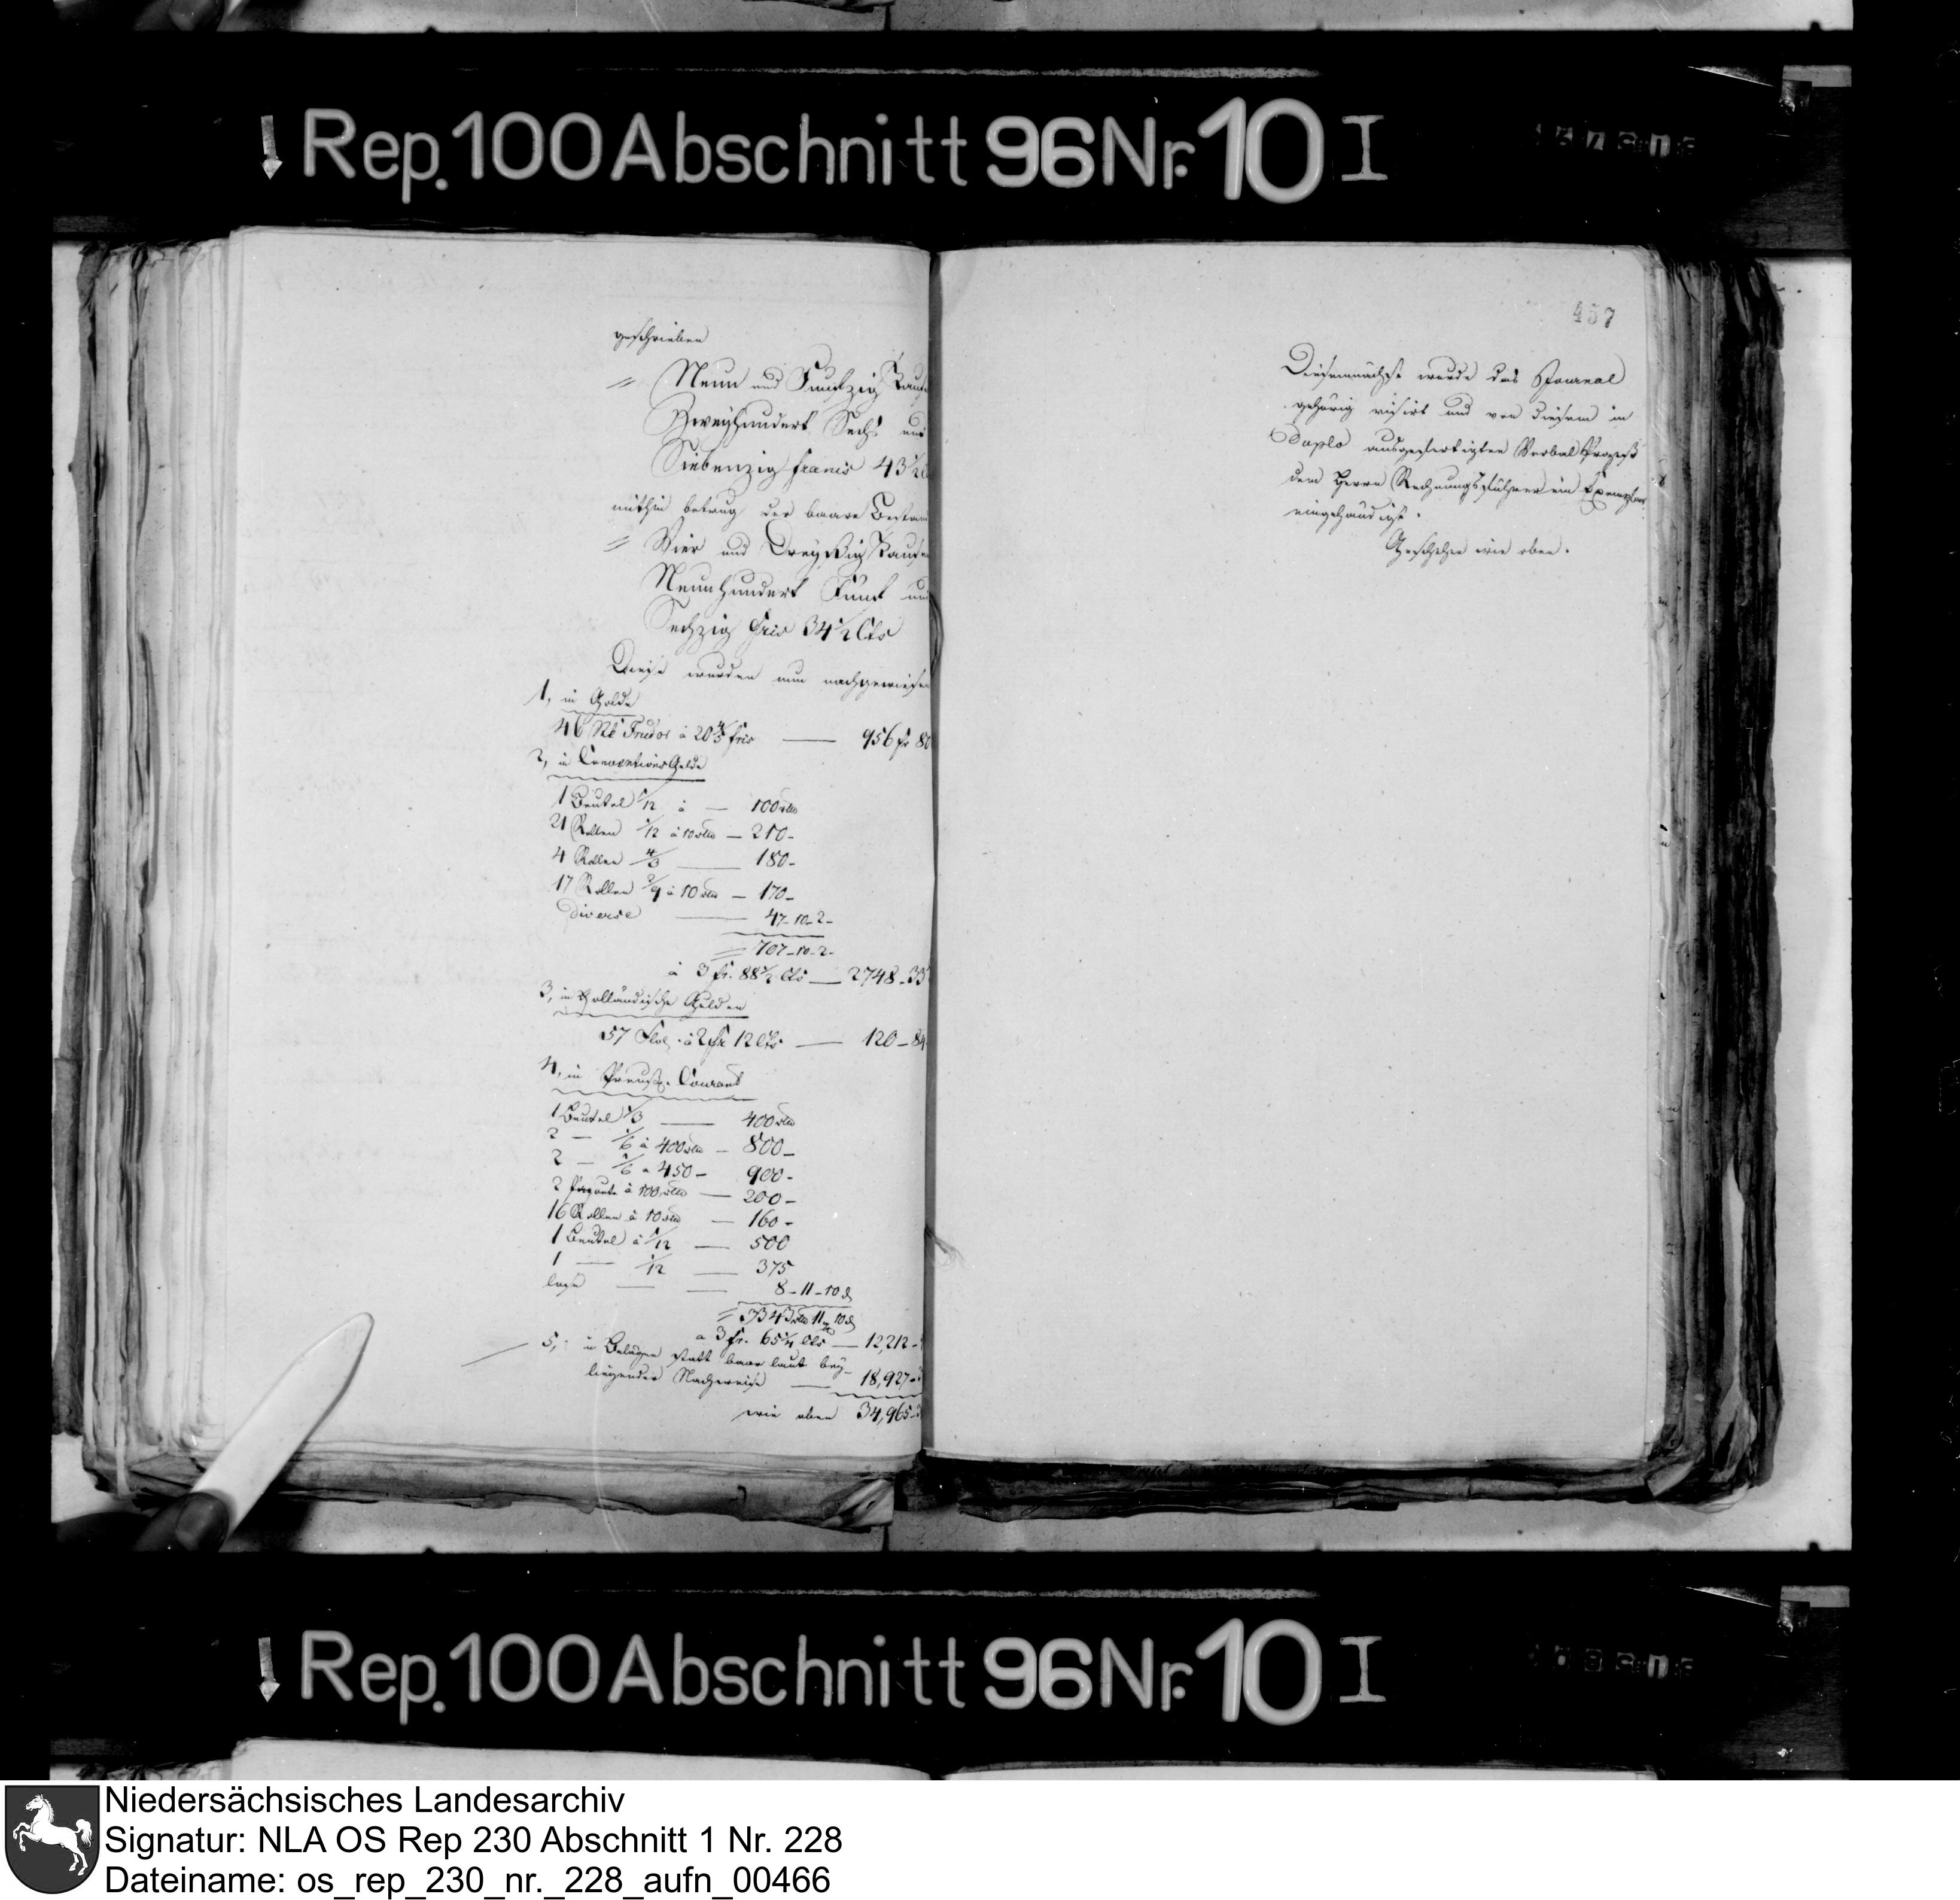 Rep. 100 Abschnitt 96 Nr. 10 I
geschrieben
= Neun und Funfzig Taus
Zweyhundert Sechs und
Siebenzig francs 43½
mithin betrug der baare Bestan
= Vier und Dreyßig Tausen
Neunhundert Fünf und
Sechzig frcs 34½ Cts
Diese wurden nun nachgewiesen
1, in Golde
46 St Frdor à 20⅘ frcs — 956 fr 80
2, in Conventions Gelde
1 Beutel 1/12 à — 100 rthlr
21 Rollen 1/12 à 10 rthlr — 210 -
4 Rollen 4/3 — 180 -
17 Rollen 2/9 à 10 rthlr — 170 -
diverse — 47 - 10 - 2 -
= 707 - 10 - 2 -
à 3 fr. 88½ Cts — 2748 - 33
3, in Holländische Gulden
57 Flor. à 2 fr 12 Cts — 120 - 84
4, in Preuß. Courant
1 Beutel 1/3 — 400 rthlr
2 — 1/6 à 400 rthlr — 800 -
2 — 1/6 a 450 - 900 -
2 Paquete à 100 rthlr — 200 -
16 Rollen à 10 rthlr — 160 -
1 Beutel à 1/12 — 500
1 — 1/12 — 375
lose — 8 - 11 - 10 d
= 3343 rthlr 11 10 d
a 3 fr. 65¼ Cts — 12,212 -
5, in Belägen statt baar laut bey-
liegender Nachweise — 18,927 -
wie oben 34,965
457
Diesemnächst wurde das Journal
gehörig visirt und von diesem in
Duplo ausgefertigten Verbal Prozeß
dem Herrn Rechnungsführer ein Exemplar
eingehändigt.
Geschehen wie oben.
Rep. 100 Abschnitt 96 Nr. 10 I
Niedersächsisches Landesarchiv
Signatur: NLA OS Rep 230 Abschnitt 1 Nr. 228
Dateiname: os_rep_230_nr._228_aufn_00466